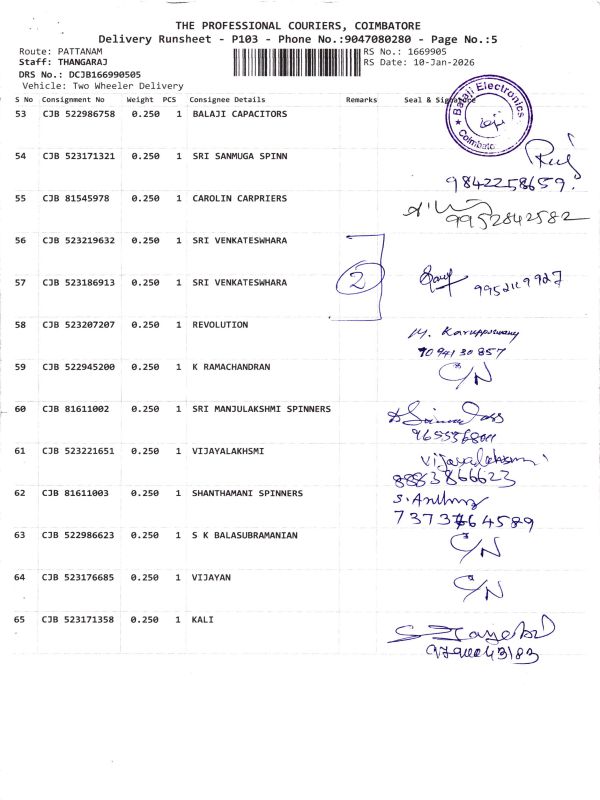 THE PROFESSIONAL COURIERS, COIMBATORE
Delivery Runsheet - P103 - Phone No.:9047080280 - Page No.:5
Route: PATTANAM RS No.: 1669905
Staff: THANGARAJ RS Date: 10-Jan-2026
DRS No.: DCJB166990505
Vehicle: Two Wheeler Delivery
S No Consignment No Weight PCS Consignee Details Remarks Seal & Signature
Balaji Electronics
Coimbato
53 CJB 522986758 0.250 1 BALAJI CAPACITORS
54 CJB 523171321 0.250 1 SRI SANMUGA SPINN
9842258659.
55 CJB 81545978 0.250 1 CAROLIN CARPRIERS
9952842582
56 CJB 523219632 0.250 1 SRI VENKATESWHARA
57 CJB 523186913 0.250 1 SRI VENKATESWHARA 2
58 CJB 523207207 0.250 1 REVOLUTION
M. Karuppuswamy
59 CJB 522945200 0.250 1 K RAMACHANDRAN C/N
60 CJB 81611002 0.250 1 SRI MANJULAKSHMI SPINNERS
61 CJB 523221651 0.250 1 VIJAYALAKHSMI
8883866623
62 CJB 81611003 0.250 1 SHANTHAMANI SPINNERS S. Anthony
63 CJB 522986623 0.250 1 S K BALASUBRAMANIAN C/N
64 CJB 523176685 0.250 1 VIJAYAN C/N
65 CJB 523171358 0.250 1 KALI